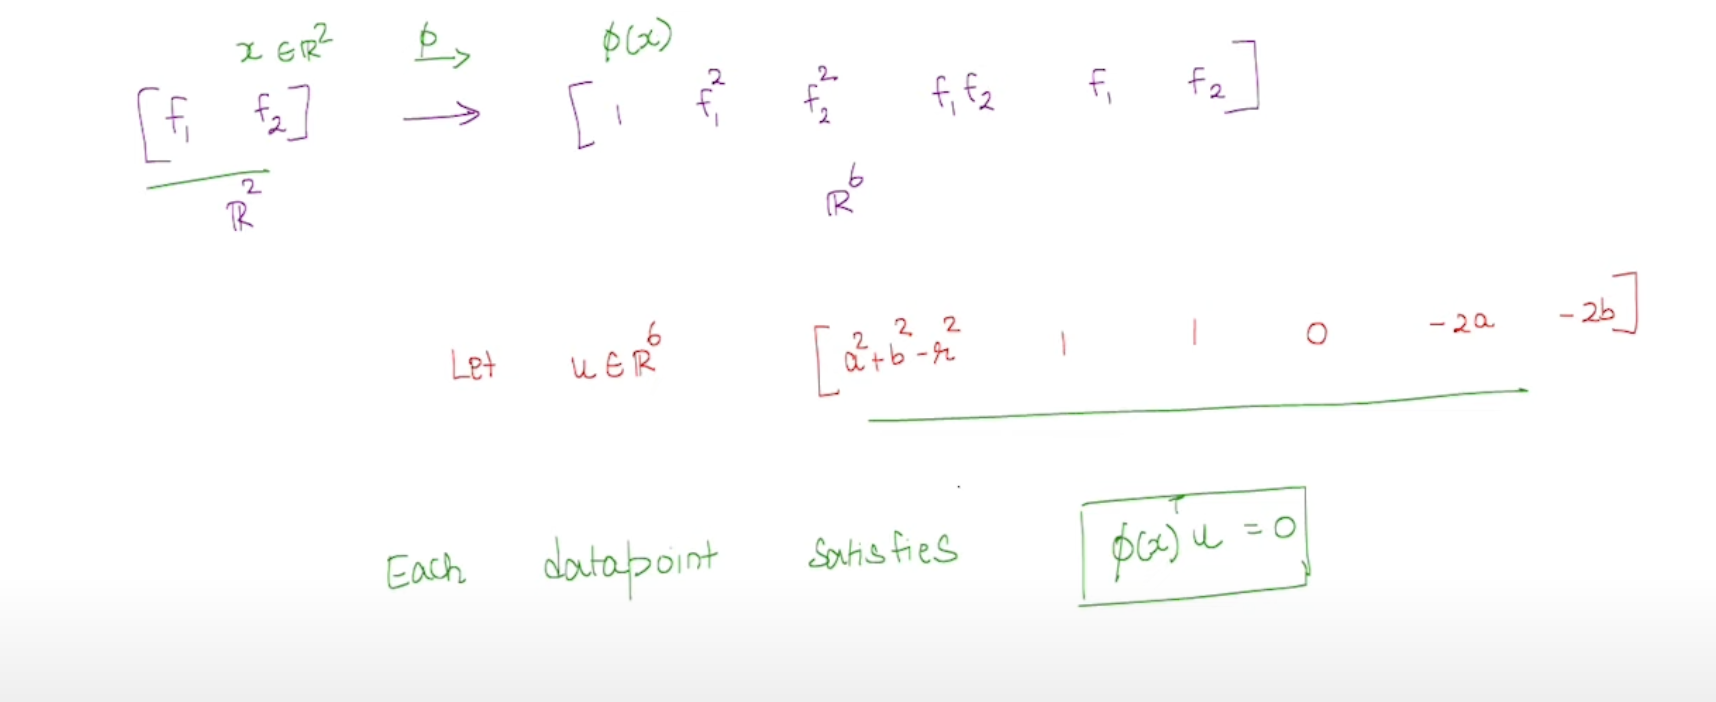 x ∈ ℝ² ϕ→ ϕ(x)
[f₁ f₂] → [1 f₁² f₂² f₁f₂ f₁ f₂]
ℝ² ℝ⁶
Let u ∈ ℝ⁶ [a²+b²-r² 1 1 0 -2a -2b]
Each datapoint satisfies ϕ(x)ᵀu = 0